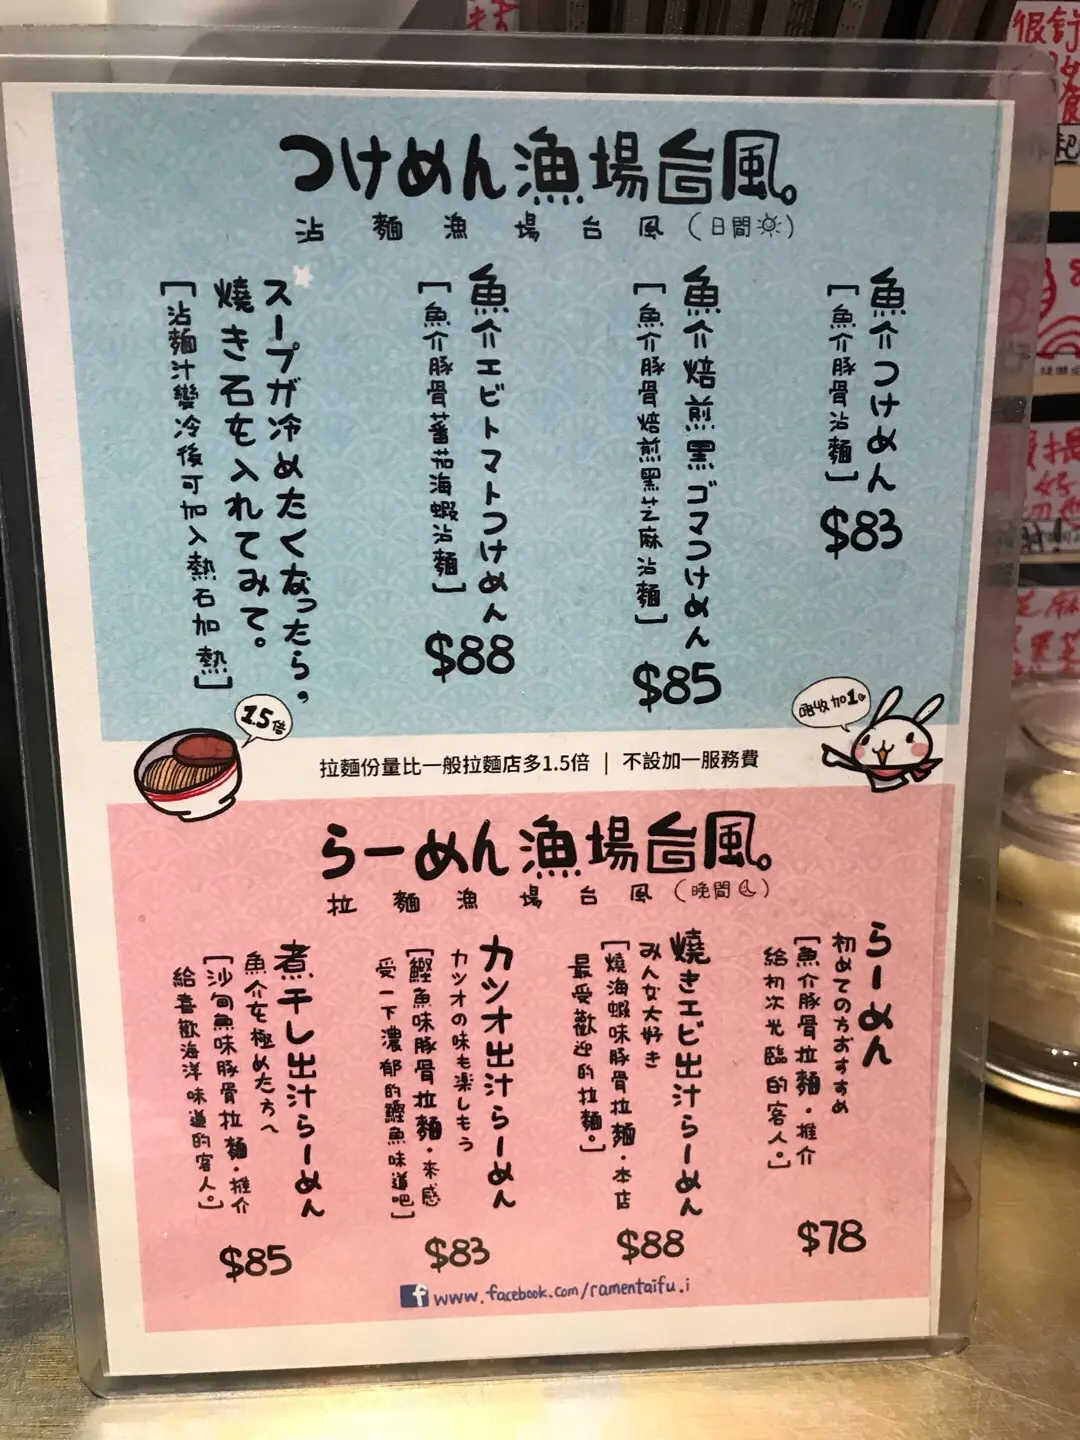 つけめん漁場台風。
沾麵漁場台風(日間)
魚介つけめん
[魚介豚骨沾麵]
$83
魚介焙煎黒ゴマつけめん
[魚介豚骨焙煎黑芝麻沾麵]
$85
魚介エビトマトつけめん
[魚介豚骨蕃茄海蝦沾麵]
$88
スープが冷めたくなったら,
焼き石を入れてみて。
[沾麵汁變冷後可加入熱石加熱]
1.5倍
拉麵份量比一般拉麵店多1.5倍 | 不設加一服務費
唔收加1。
らーめん漁場台風。
拉麵漁場台風(晚間)
らーめん
初めての方おすすめ
[魚介豚骨拉麵·推介
給初次光臨的客人。]
$78
焼きエビ出汁らーめん
みんな大好き
[燒海蝦味豚骨拉麵·本店
最受歡迎的拉麵。]
$88
カツオ出汁らーめん
カツオの味も楽しもう
[鰹魚味豚骨拉麵·來感
受一下濃郁的鰹魚味道吧]
$83
煮干し出汁らーめん
魚介を極めた方へ
[沙甸魚味豚骨拉麵·推介
給喜歡海洋味道的客人。]
$85
www.facebook.com/ramentaifu.i